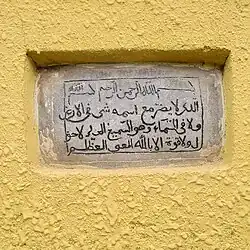 بسم الله الرحمن الرحيم
الذي لا يضر مع اسمه شئ في الارض
ولا في السماء وهو السميع العليم لاحو
ل ولا قوة الا بالله العلي العظيم